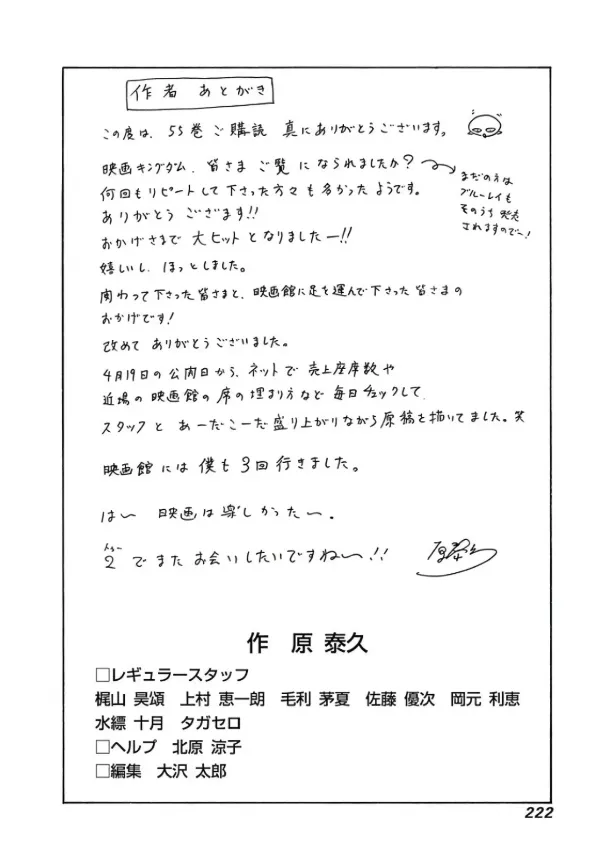 作者 あとがき
この度は、55巻ご購読 真にありがとうございます。
映画キングダム、皆さま ご覧になられましたか?
まだの方は
ブルーレイも
そのうち発売
されますのでー!
何回もリピートして下さった方々も多かったようです。
ありがとう ござます!!
おかげさまで 大ヒットとなりましたー!!
嬉しいし、ほっとしました。
関わって下さった皆さまと、映画館に足を運んで下さった皆さまの
おかげです!
改めて ありがとうございました。
4月19日の公開日から、ネットで 売上座席数や
近場の映画館の席の埋まり方など 毎日チェックして
スタッフと あーだこーだ盛り上がりながら原稿を描いてました。笑
映画館には 僕も 3回行きました。
は〜 映画は楽しかった〜。
2でまたお会いしたいですね〜!!
原泰久
作 原 泰久
□レギュラースタッフ
梶山 昊頌 上村 恵一朗 毛利 茅夏 佐藤 優次 岡元 利恵
水縹 十月 タガセロ
□ヘルプ 北原 涼子
□編集 大沢 太郎
222